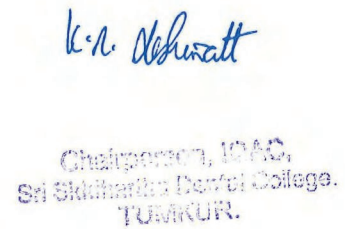 K.R.
Chairperson, IQAC,
Sri Siddhartha Dental College.
TUMKUR.